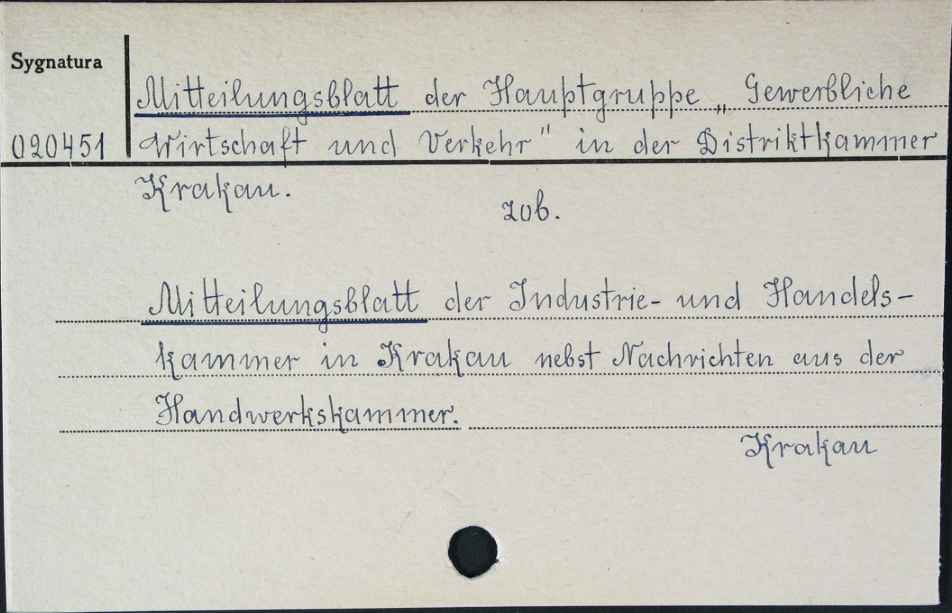 Sygnatura
Mitteilungsblatt der Hauptgruppe „Gewerbliche
020451 Wirtschaft und Verkehr" in der Distriktkammer
Krakau.
zob.
Mitteilungsblatt der Industrie- und Handels-
kammer in Krakau nebst Nachrichten aus der
Handwerkskammer.
Krakau